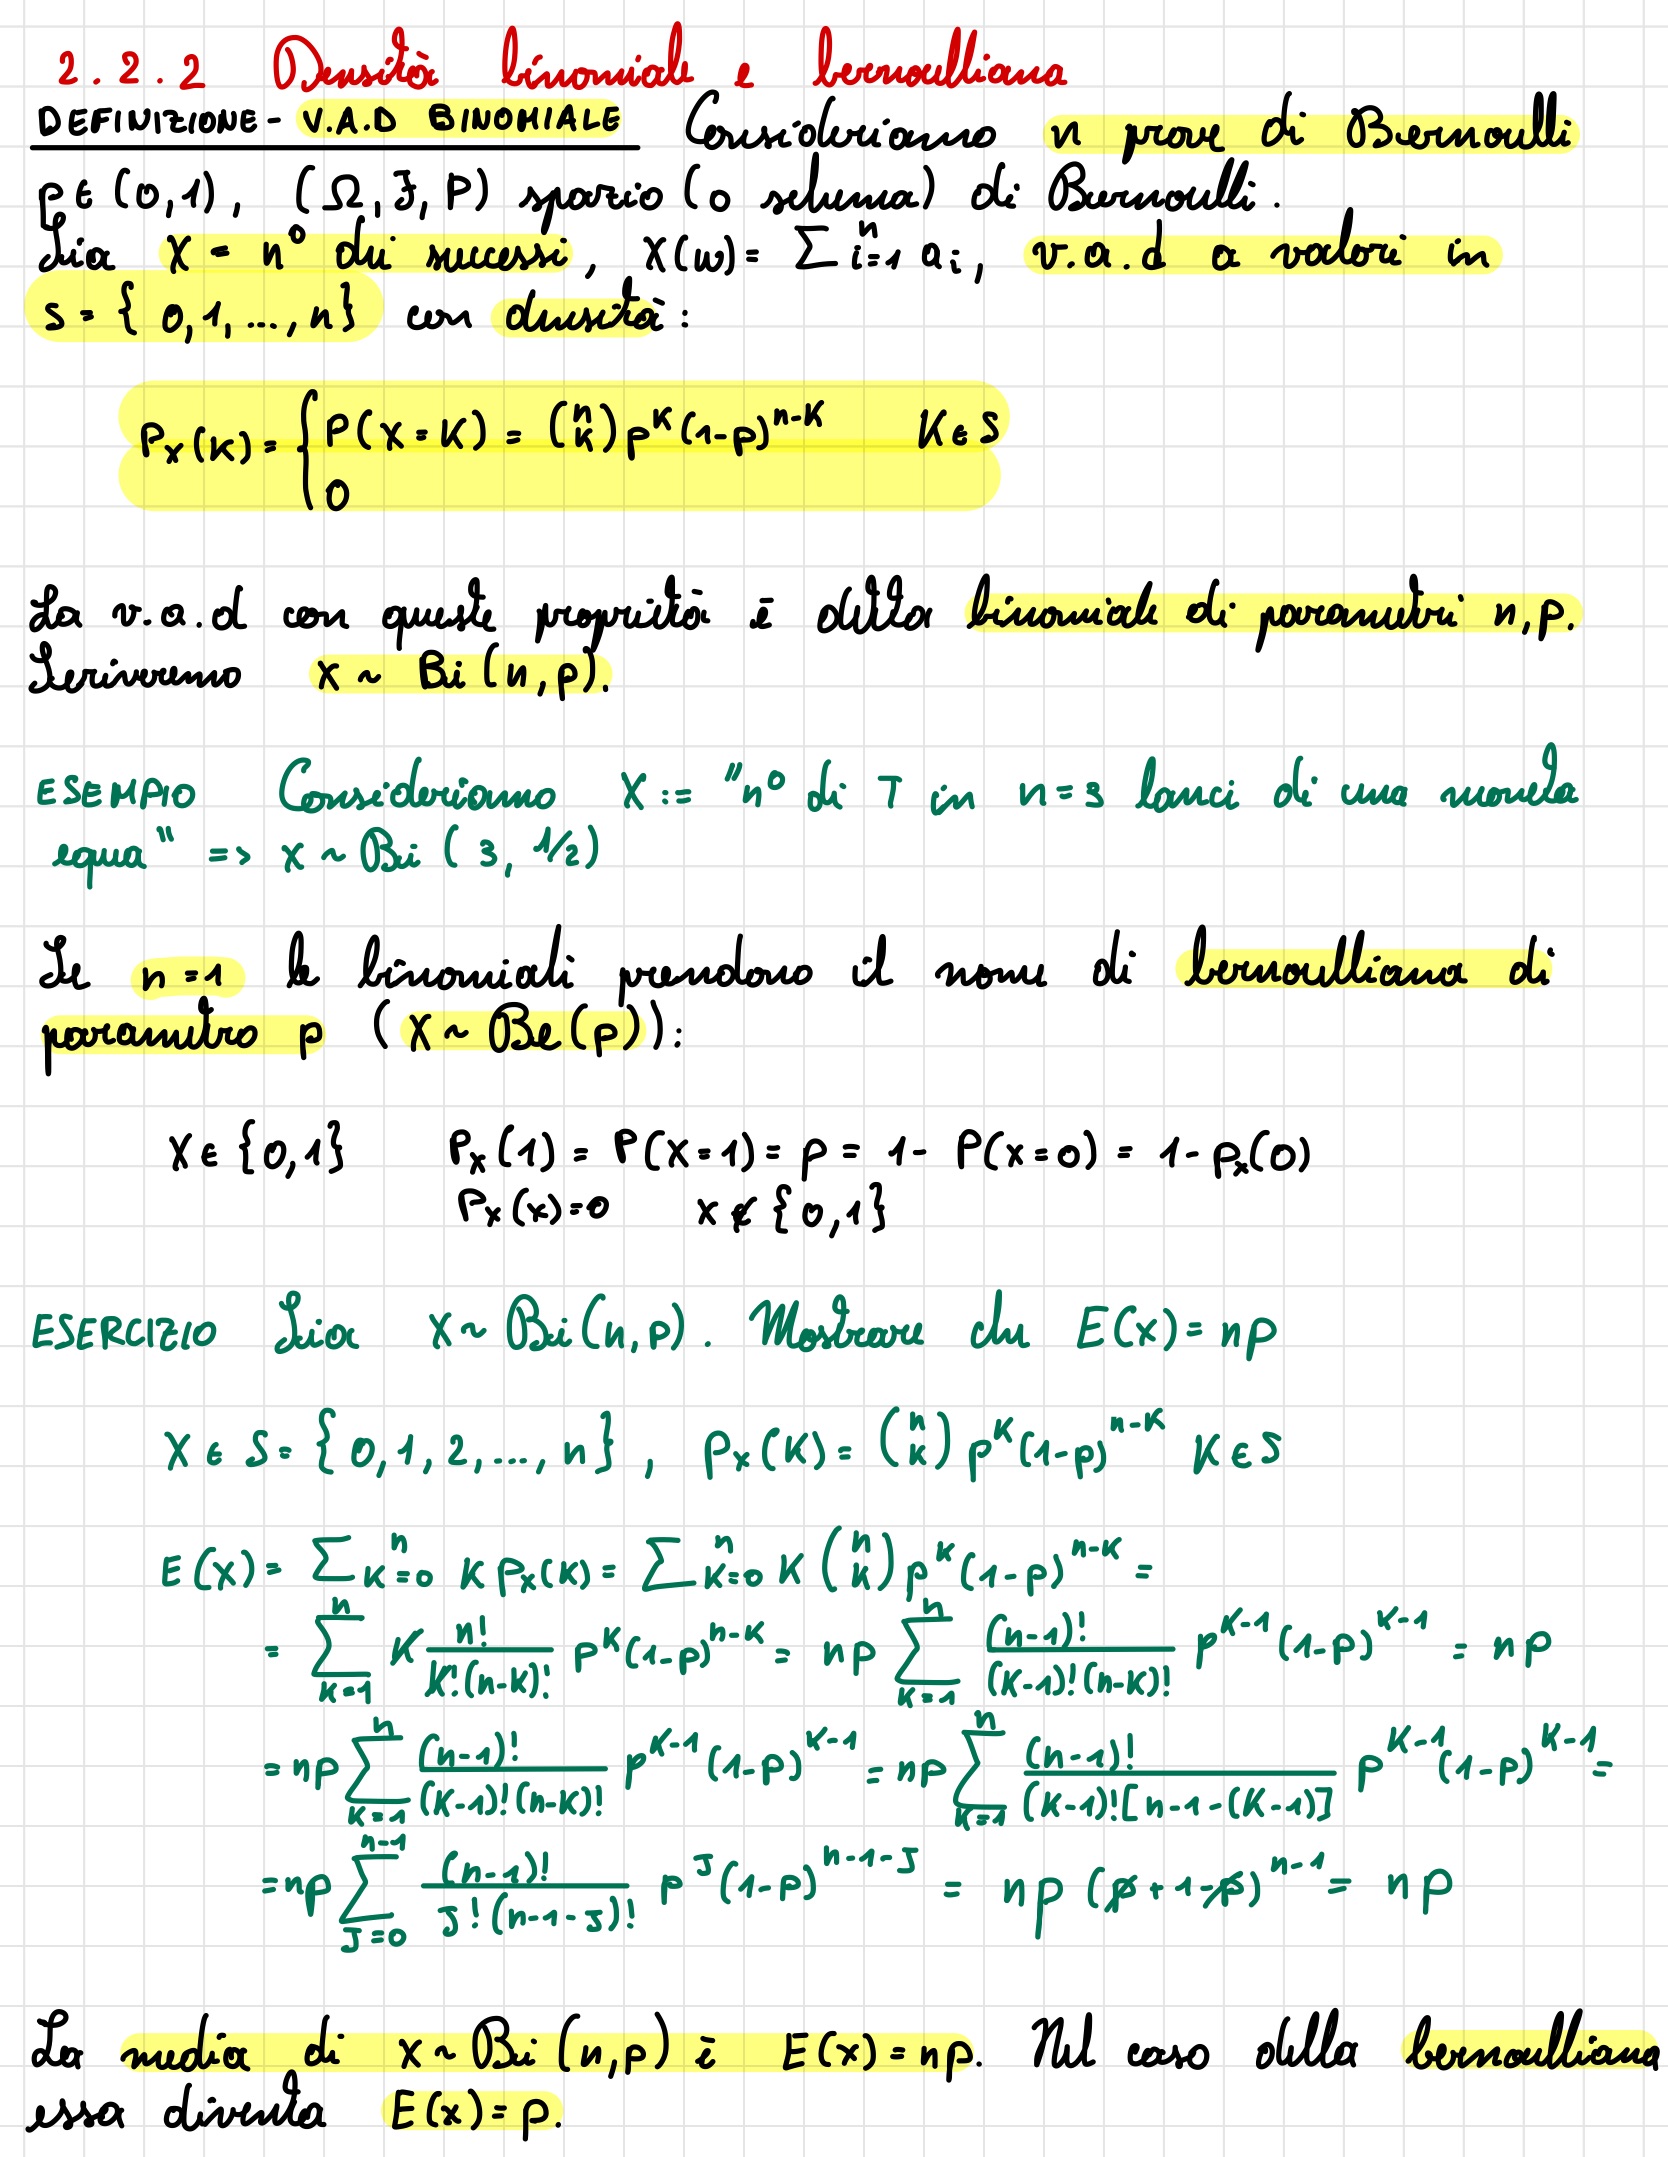 2.2.2 Densità binomiale e bernoulliana
DEFINIZIONE - V.A.D BINOMIALE Consideriamo n prove di Bernoulli
p ∈ (0,1), (Ω, F, P) spazio (o schema) di Bernoulli.
Sia X = n° dei successi, X(ω) = ∑ i=1^n a_i, v.a.d a valori in
S = { 0,1,..., n} con densità:
P_X(K) = { P(X=K) = (n K) p^K (1-p)^{n-K} K ∈ S
0
La v.a.d con queste proprietà è detta binomiale di parametri n, p.
Scriveremo X ~ Bi(n,p).
ESEMPIO Consideriamo X := "n° di T in n=3 lanci di una moneta
equa" => X ~ Bi (3, 1/2)
Se n=1 le binomiali prendono il nome di bernoulliana di
parametro p (X ~ Be(p)):
X ∈ {0,1} P_X(1) = P(X=1) = p = 1 - P(X=0) = 1 - p_X(0)
P_X(x)=0 x ∉ {0,1}
ESERCIZIO Sia X ~ Bi(n,p). Mostrare che E(X) = np
X ∈ S = {0,1,2,..., n}, p_X(K) = (n K) p^K (1-p)^{n-K} K ∈ S
E(X) = ∑ K=0^n K p_X(K) = ∑ K=0^n K (n K) p^K (1-p)^{n-K} =
= ∑_{K=1}^n K n!/(K!(n-K)!) p^K (1-p)^{n-K} = np ∑_{K=1}^n (n-1)!/((K-1)!(n-K)!) p^{K-1} (1-p)^{K-1} = np
= np ∑_{K=1}^n (n-1)!/((K-1)!(n-K)!) p^{K-1} (1-p)^{K-1} = np ∑_{K=1}^n (n-1)!/((K-1)![n-1-(K-1)] p^{K-1} (1-p)^{K-1} =
= np ∑_{J=0}^{n-1} (n-1)!/(J!(n-1-J)!) p^J (1-p)^{n-1-J} = np (p+1-p)^{n-1} = np
La media di X ~ Bi(n,p) è E(X) = np. Nel caso della bernoulliana
essa diventa E(X) = p.